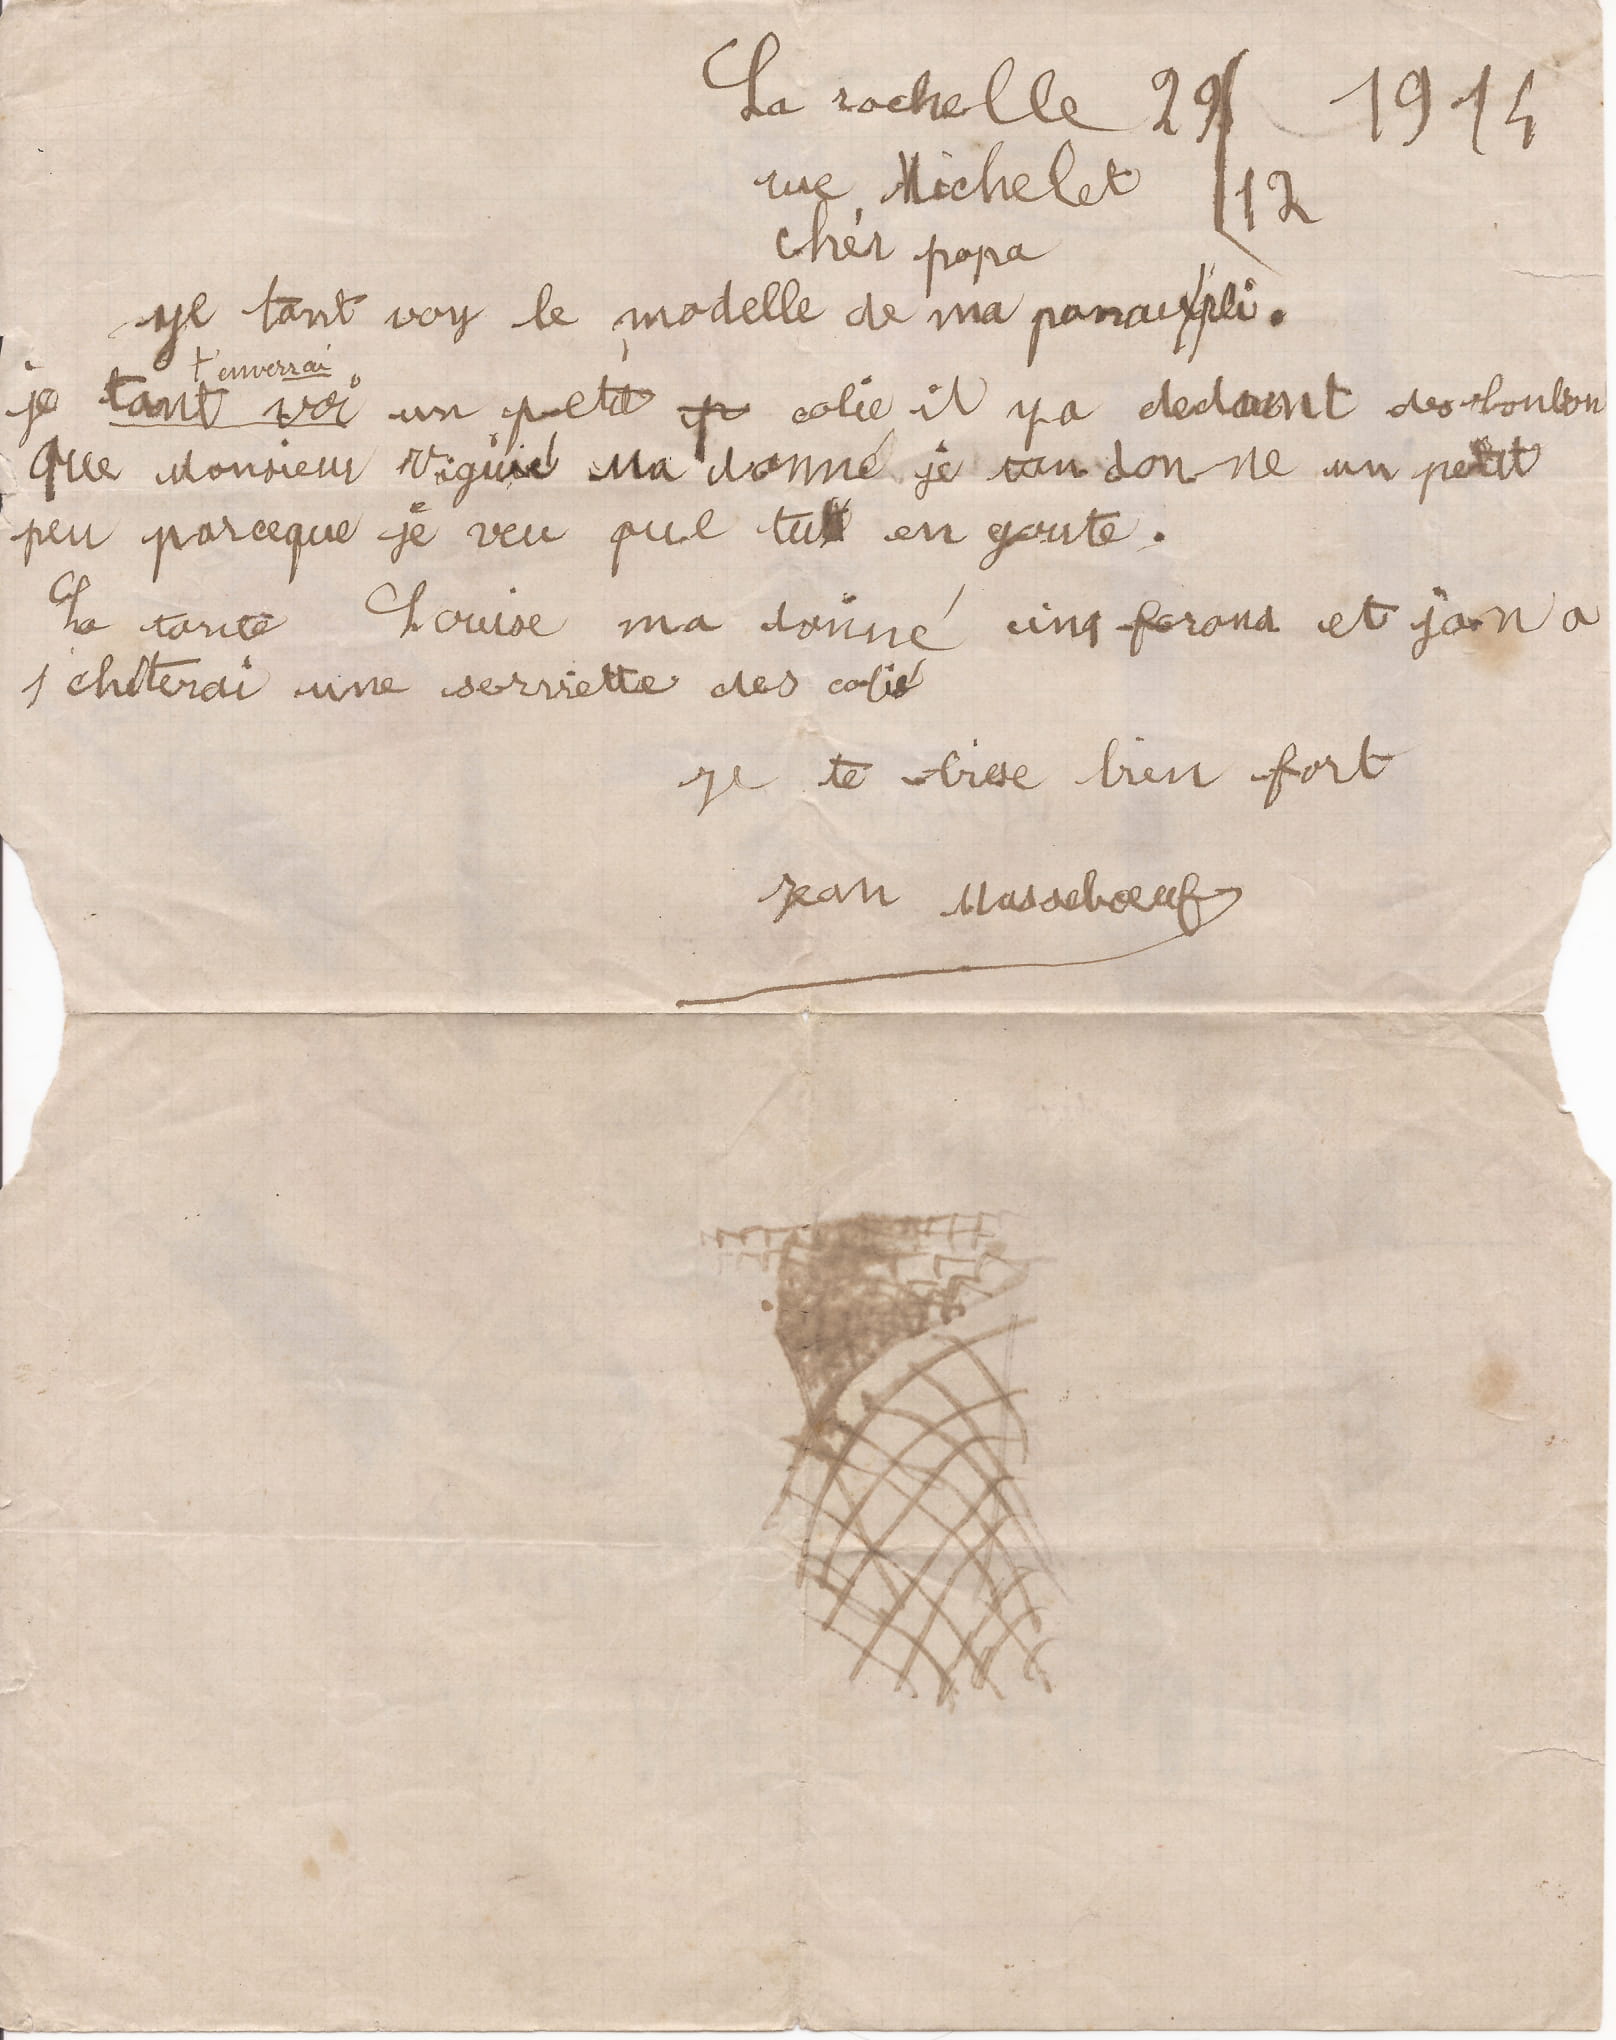 La rochelle 29/12 1914
rue Michelet
chér papa
je tant voy le modelle de ma
t'enverrai
je tant voi un petit colie il ya dedant des bonbon
que monsieur Viguié Ma donné je tan donne un petit
peu parceque je veu que tu en goute.
La tante Louise ma donné cinq farand et jan a
chéterai une serviette des colié
je te bise bien fort
Jean Masseboeuf